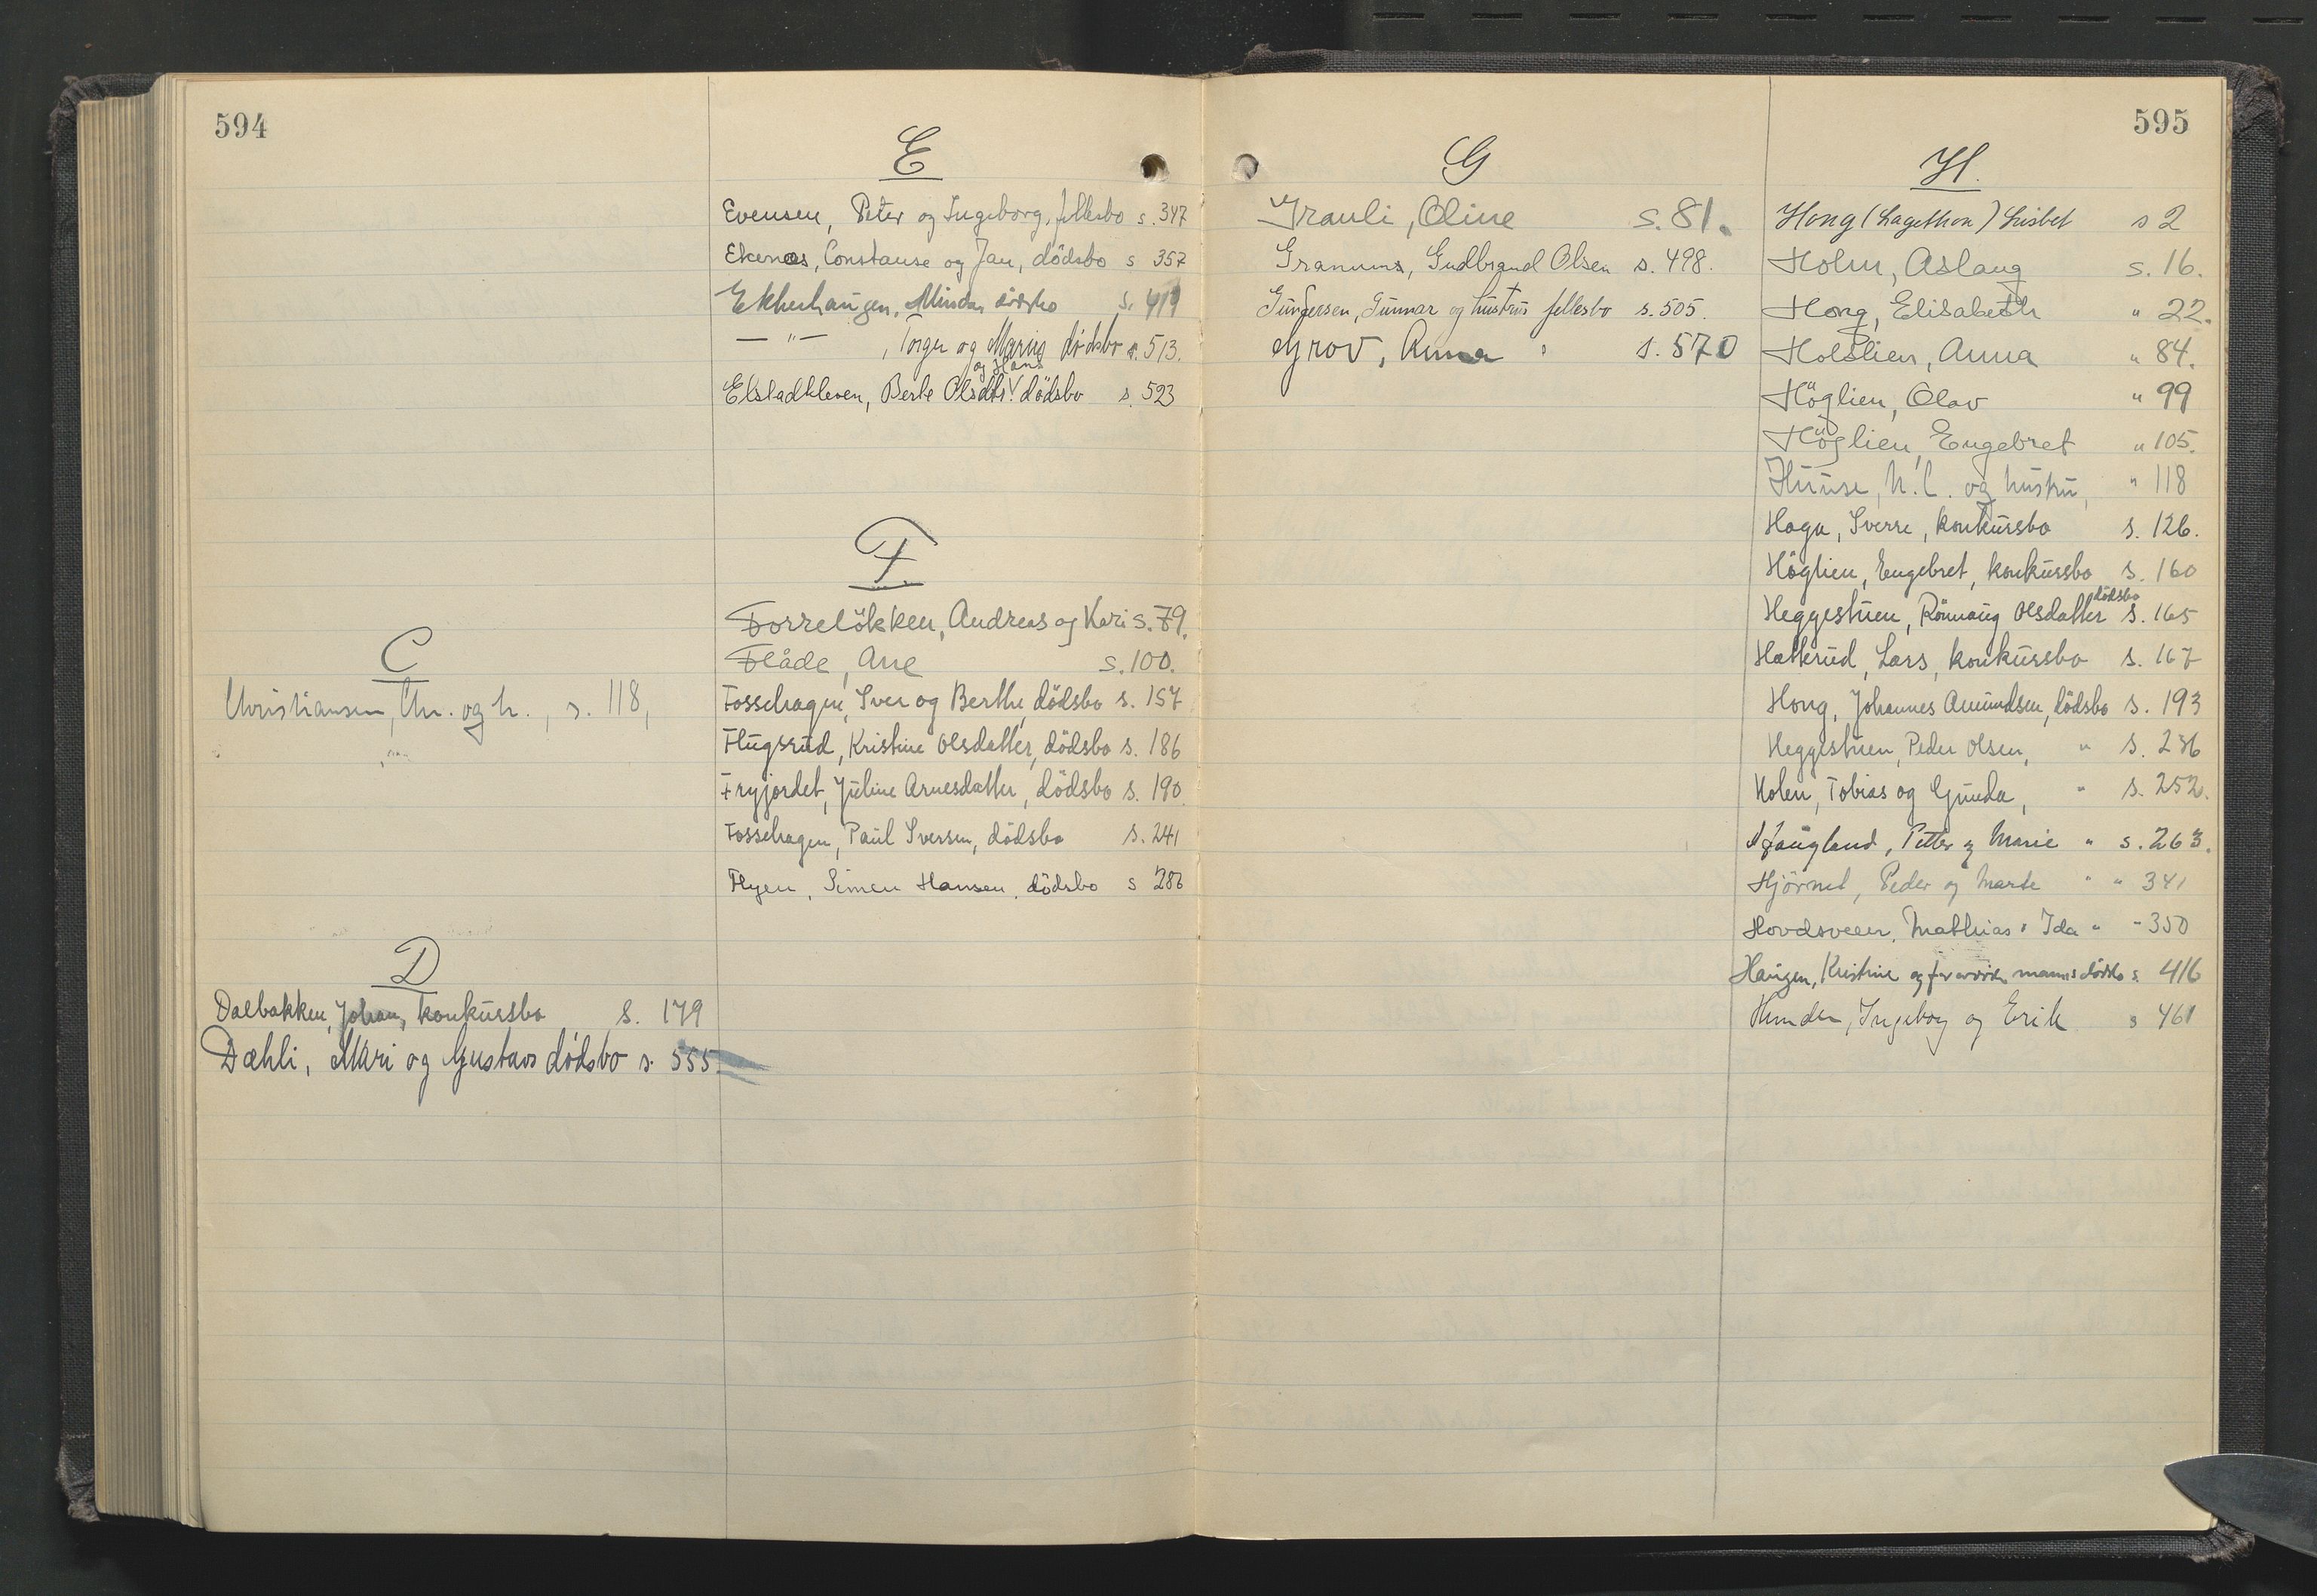 594
C
Christiansen, Chr. og h., s. 118,
D
Dalbakken, Johan, konkursbo s. 179
Dæhli, Mari og Gustavs dödsbo s. 555.
E
Evensen, Peter og Ingeborg, fellesbo s. 347
Ekenæs, Constanse og Jan, dödsbo s 357
Ekkerhaugen, Mindas dödsbo s. 419
— " — , Torger og Marius dödsbo s. 513.
og Hans
Elstadkleven, Berte Olsdtr. V dödsbo s. 523
F.
Forrelökken, Andreas og Kari s. 79.
Flåde, Ane s. 100.
Fossehagen, Iver og Berthe, dödsbo s. 157
Flugsrud, Kristine Olsdatter, dödsbo s. 186
Fryjordet, Juline Arnesdatter, dödsbo s. 190.
Fossehagen, Paul Iversen, dödsbo s. 241
Flyen, Simen Hansen, dödsbo s 286
595
G
Grauli, Oline s. 81.
Granums, Gudbrand Olsen s. 498.
Gundersen, Gunnar og hustrus fellesbo s. 505.
Grov, Anna " s. 570
H.
Hong (Lagethon) Lisbet s 2
Holm, Aslaug s. 16.
Hong, Elisabeth " 22.
Holslien, Anna " 84.
Höglien, Olav " 99
Höglien, Engebret " 105.
Huuse, N. C. og hustru, " 118
Haga, Sverre, konkursbo s. 126.
Höglien, Engebret, konkursbo s. 160
dödsbo
Heggestuen, Rönnaug Olsdatter s. 165
Hatterud, Lars, konkursbo s. 167
Hong, Johannes Amundsen, dödsbo s. 193
Heggestuen, Peder Olsen, " s. 236
Holen, Tobias og Gunda, " s. 252.
Haugland, Petter og Marie " s. 263.
Hjörnet, Peder og Marte " " 341
Hovdsveen, Mathias " Ida " - 350
Haugen, Kristine og før avdøde manns dödsbo s. 416
Hunder, Ingeborg og Erik s 461